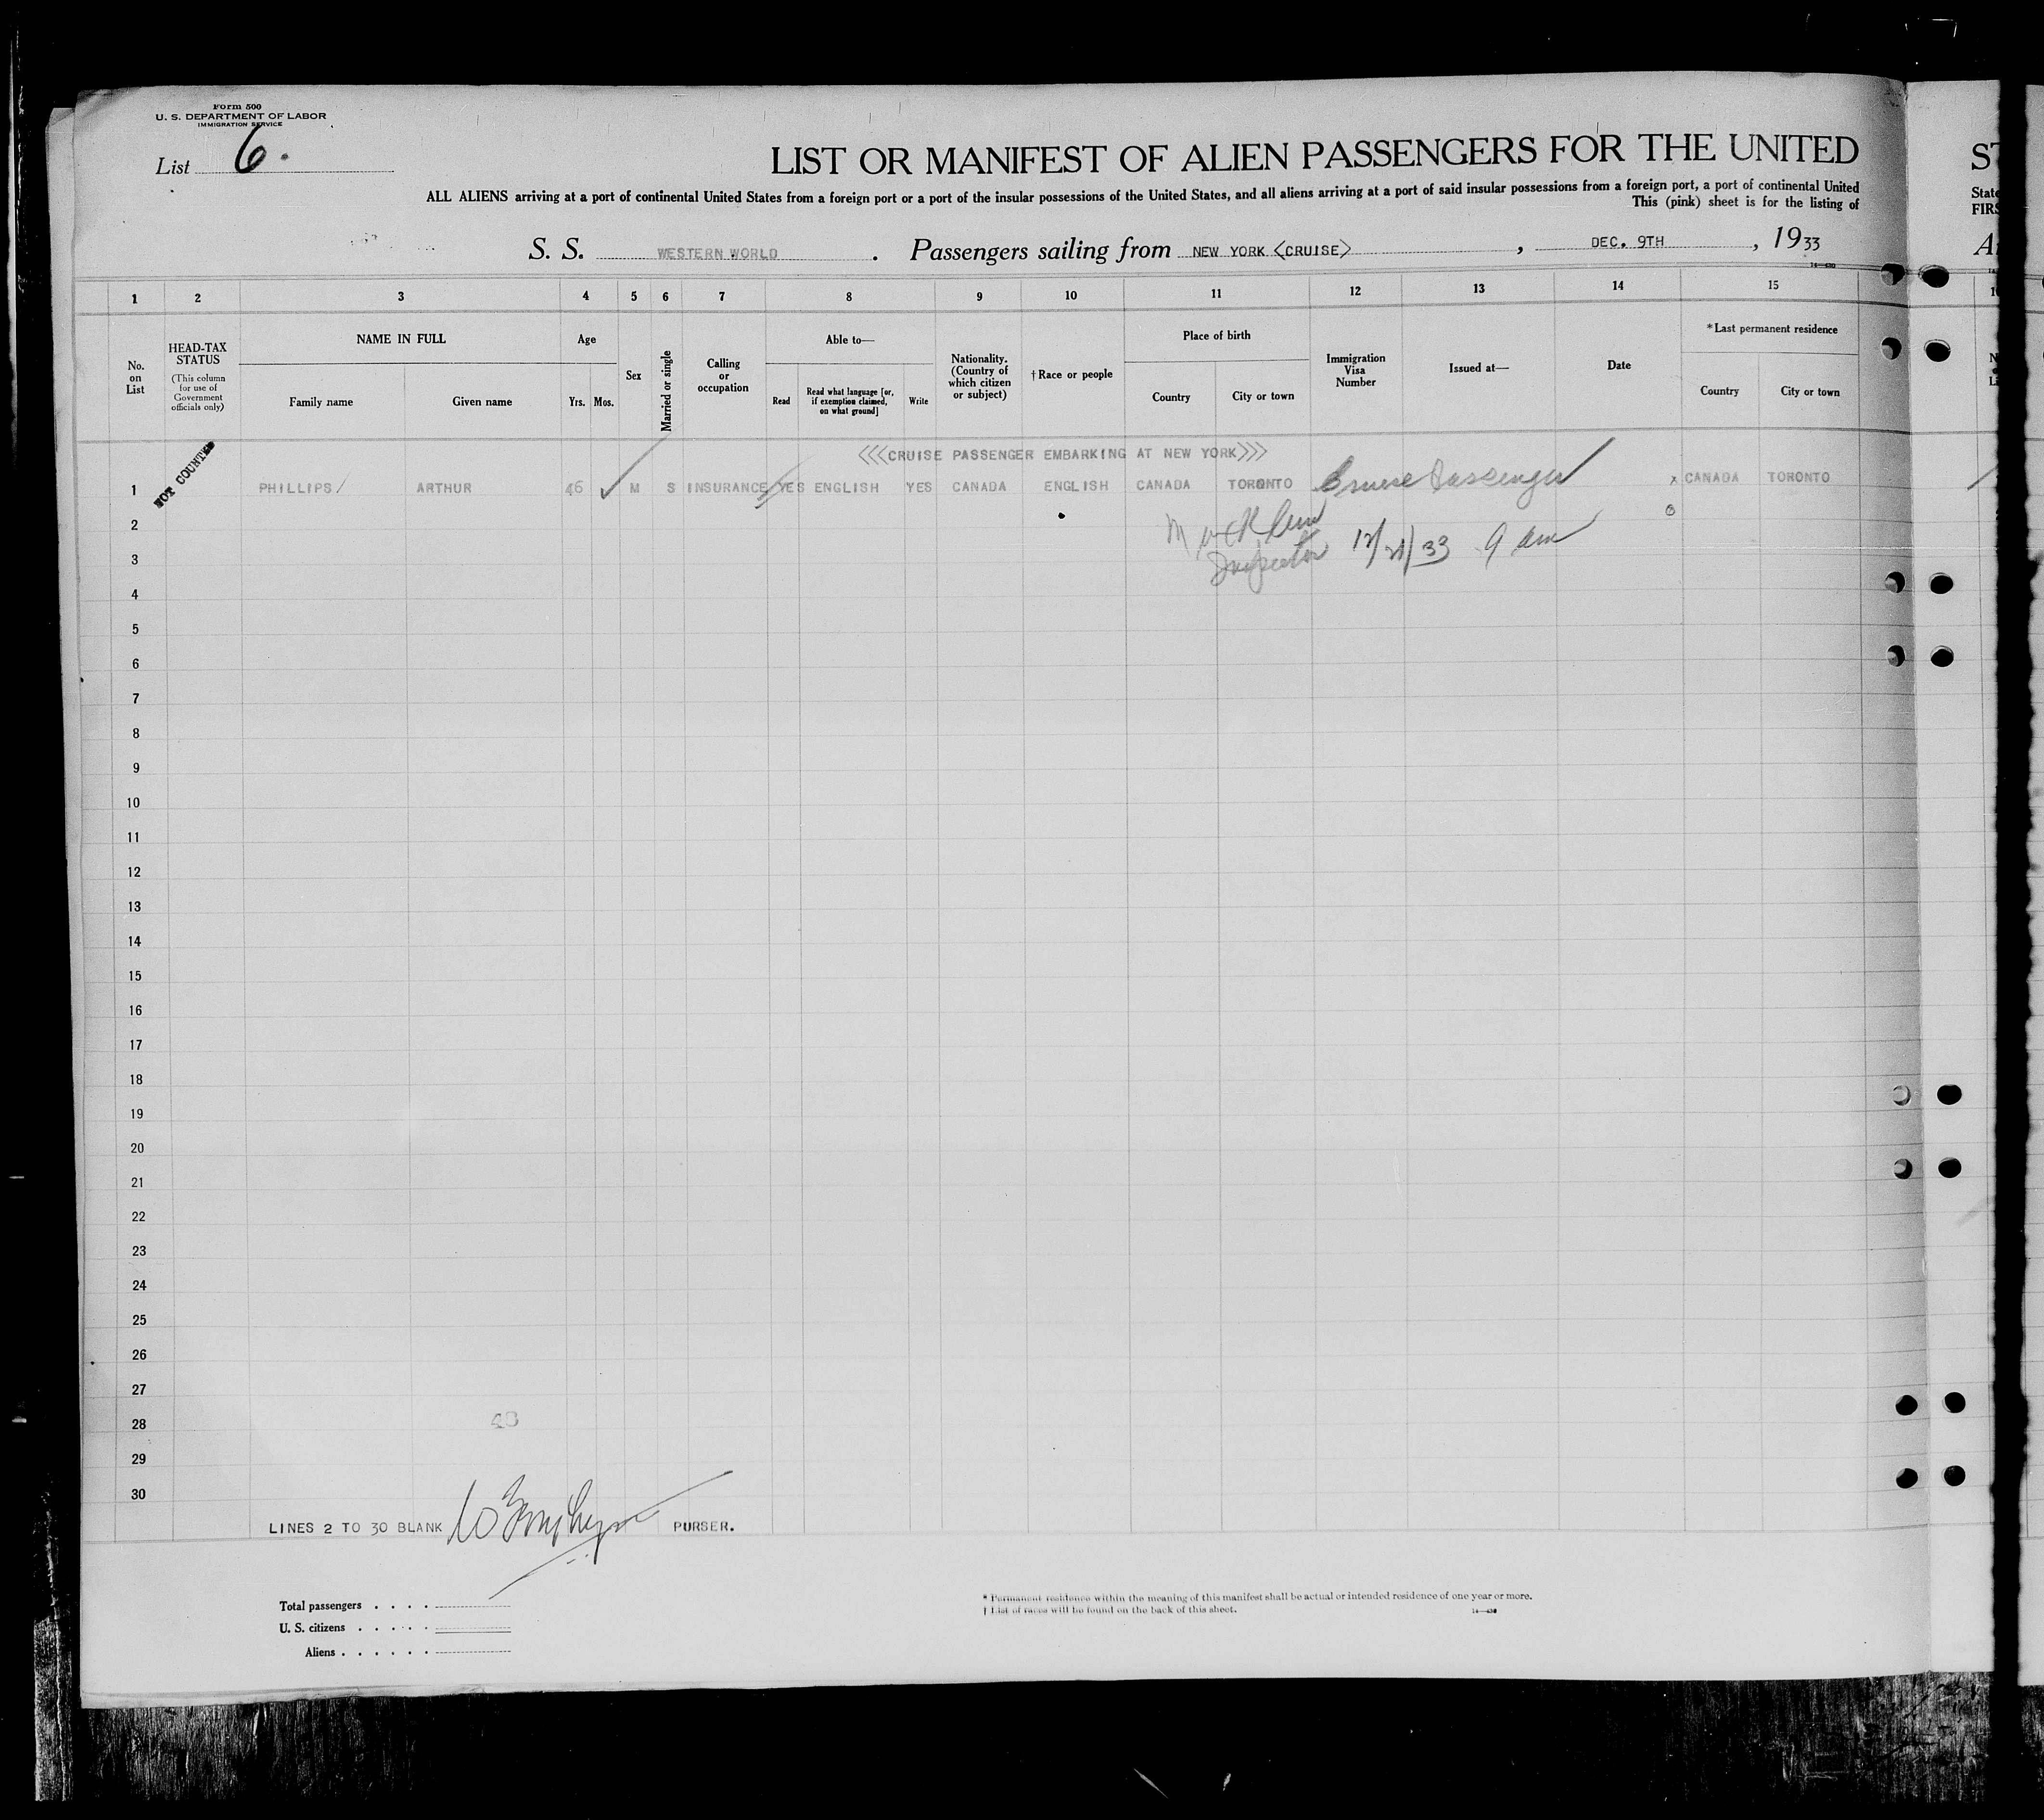 Form 500
U. S. DEPARTMENT OF LABOR
IMMIGRATION SERVICE
List 6.
LIST OR MANIFEST OF ALIEN PASSENGERS FOR THE UNITED
ST
ALL ALIENS arriving at a port of continental United States from a foreign port or a port of the insular possessions of the United States, and all aliens arriving at a port of said insular possessions from a foreign port, a port of continental United
State
This (pink) sheet is for the listing of
FIRS
S. S. WESTERN WORLD . Passengers sailing from NEW YORK <CRUISE> , DEC. 9TH , 1933
1 2 3 4 5 6 7 8 9 10 11 12 13 14 15
No. on List
HEAD-TAX STATUS
(This column for use of Government officials only)
NAME IN FULL
Family name
Given name
Age
Yrs. Mos.
Sex
Married or single
Calling or occupation
Able to—
Read
Read what language [or, if exemption claimed, on what ground]
Write
Nationality. (Country of which citizen or subject)
†Race or people
Place of birth
Country
City or town
Immigration Visa Number
Issued at—
Date
*Last permanent residence
Country
City or town
<<<CRUISE PASSENGER EMBARKING AT NEW YORK>>>
NOT COUNTED
1 PHILLIPS/ ARTHUR 46 ✓ M S INSURANCE YES ENGLISH YES CANADA ENGLISH CANADA TORONTO Cruise Passenger x CANADA TORONTO
2
3 Inspector 12/21/33 9 am
4
5
6
7
8
9
10
11
12
13
14
15
16
17
18
19
20
21
22
23
24
25
26
27
28
29
30
LINES 2 TO 30 BLANK PURSER.
Total passengers . . . .
U. S. citizens . . . . .
Aliens . . . . . .
* Permanent residence within the meaning of this manifest shall be actual or intended residence of one year or more.
† List of races will be found on the back of this sheet.